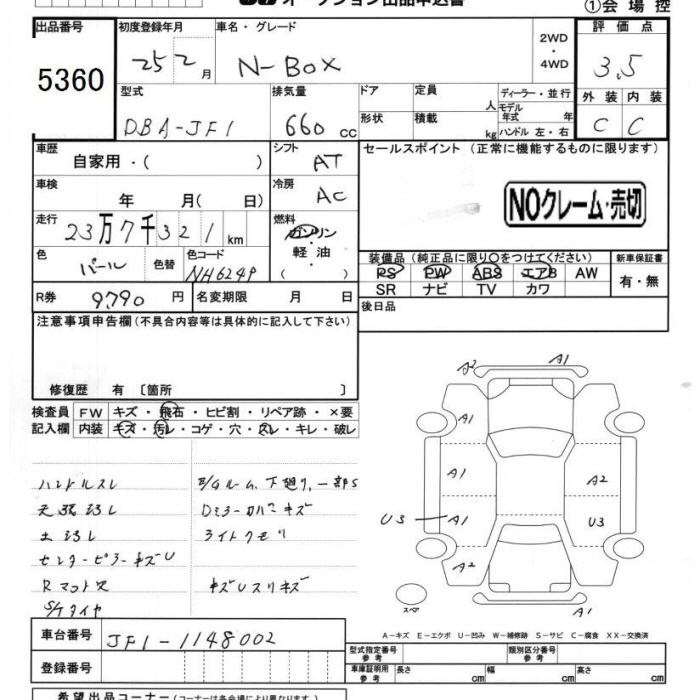 オークション出品申込書
①会場控
出品番号 初度登録年月 車名・グレード 2WD・4WD 評価点
5360 25 2月 N-BOX 3.5
型式 排気量 ドア 定員 人 ディーラー・並行 外装 内装
DBA-JF1 660cc 形状 積載 kg モデル年式 年 ハンドル 左・右 C C
車歴 シフト セールスポイント(正常に機能するものに限ります)
自家用・( ) AT
車検 冷房
年 月(日) AC NOクレーム・売切
走行 燃料
23万7千321km ガソリン
軽油
( )
色 色替 色コード 装備品(純正品に限り○をつけてください) 新車保証書
パール NH624P PS PW ABS エアB AW 有・無
SR ナビ TV カワ
R券 9790円 名変期限 月 日 後日品
注意事項申告欄(不具合内容等は具体的に記入して下さい)
修復歴 有〔箇所 〕
検査員 FW キズ・飛石・ヒビ割・リペア跡・×要
記入欄 内装 キズ・汚レ・コゲ・穴・スレ・キレ・破レ
ハンドルスレ
天張ヨゴレ
センターピラーキズU
S/Tタイヤ
E/Gルーム、下廻り、一部S
Dミラーカバーキズ
ライトクモリ
キズUスリキズ
A2 A1
A1
A1 A2
U3 A1 U3
A2
スペア A1
A-キズ E-エクボ U-凹み W-補修跡 S-サビ C-腐食 XX-交換済
車台番号 JF1-1148002
型式指定番号 参考 類別区分番号 参考
登録番号 車庫証明用 参考 長さ cm 幅 cm 高さ cm
希望出品コーナー(コーナーは各会場により異なります)